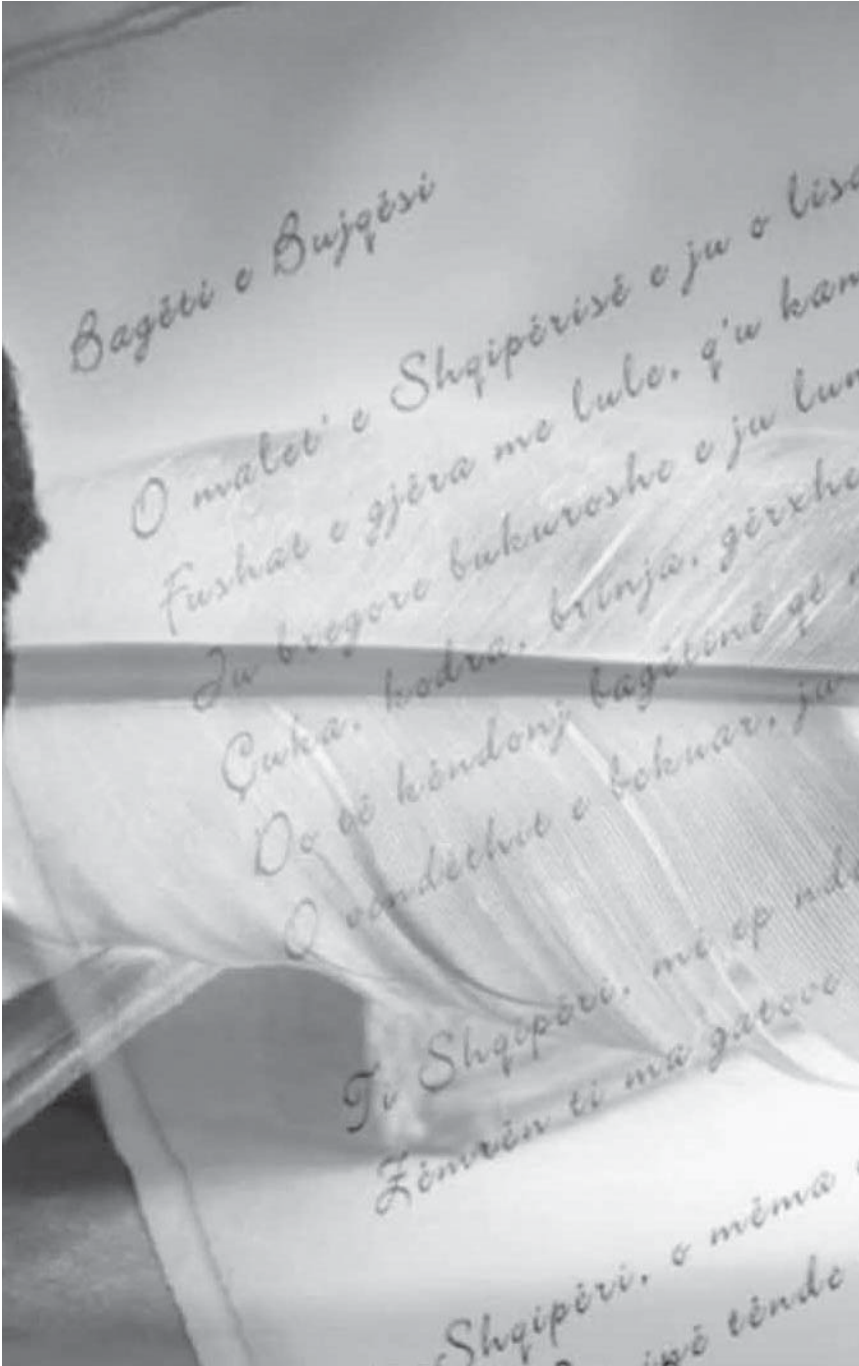 Bagëti e Bujqësi
O malet' e Shqipërisë e ju o lisa
Fushat e gjëra me lule, q'u kam
Ju bregore bukuroshe e ju lum
Çuka, kodra, brinja, gërxhe
Do të këndonj bagëtinë që
O vendëthit e bekuar, ju
Ti Shqipëri, më ep nde
Zëmrën ti ma gatove
Shqipëri, o mëma
tënde